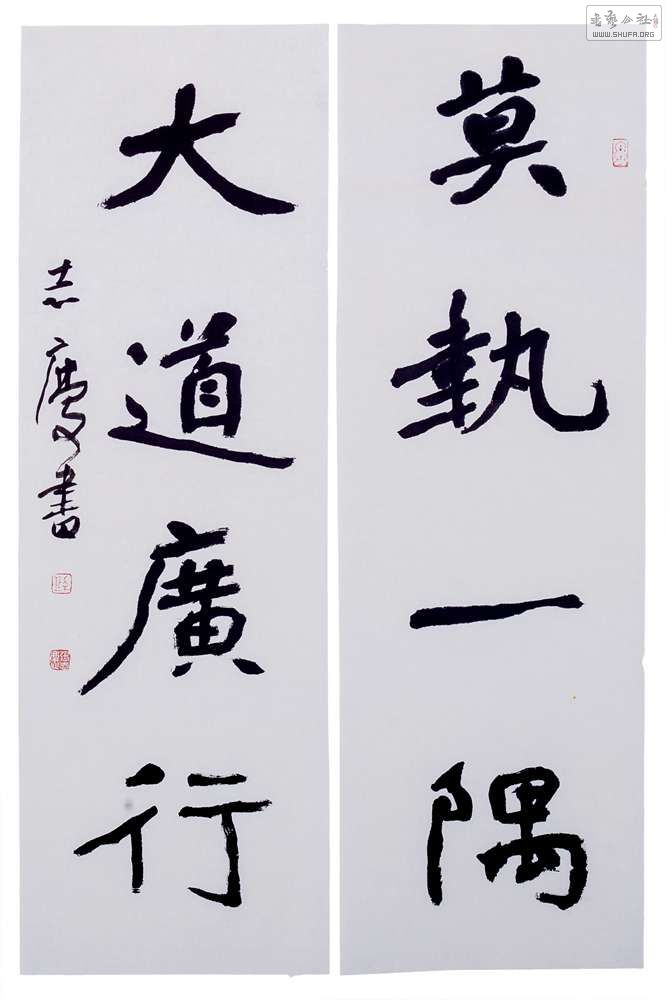 莫執一隅
大道廣行
志慶書
书艺公社
WWW.SHUFA.ORG